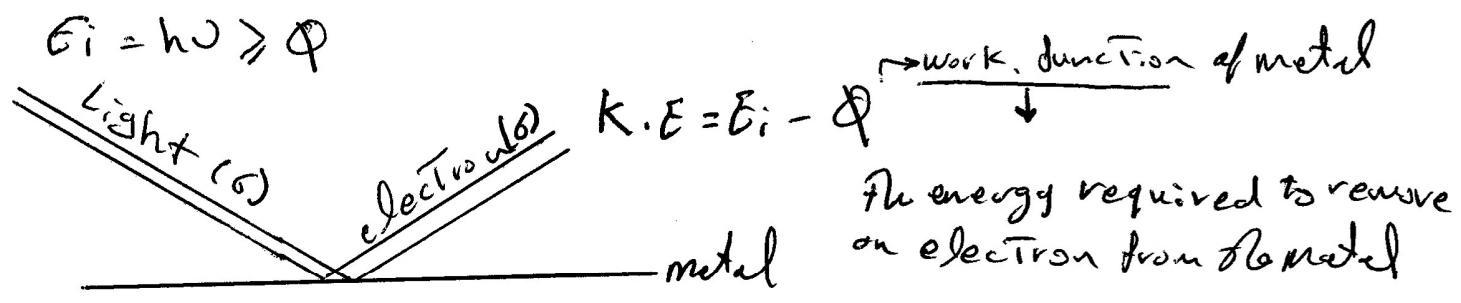 Ei = hυ ≥ Φ
Light (6)
electron (6)
K.E = Ei - Φ
→ work function of metal
↓
The energy required to remove
an electron from the metal
metal